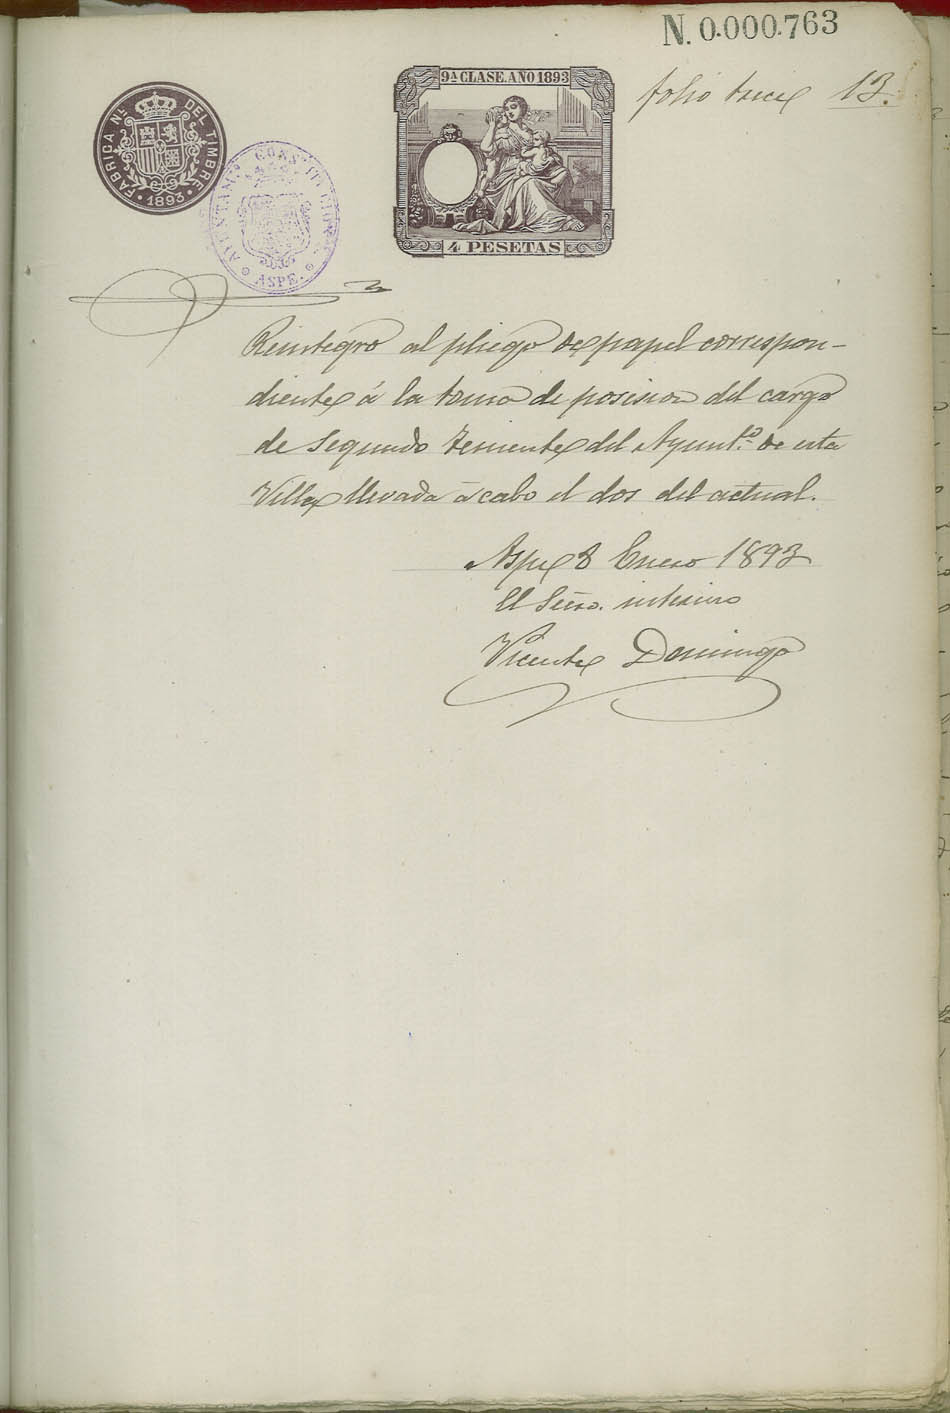 N. 0.000.763
folio trece 13.
9ª CLASE. AÑO 1893
4 PESETAS
FABRICA NL. DEL TIMBRE
1893
AYUNTAM.
ASPE.
Reintegro al pliego de papel correspon-
diente á la toma de posision del cargo
de Segundo Teniente del Ayunt.º de esta
Villa llevada á cabo el dos del actual.
Aspe 8 Enero 1893
El Sério. interino
Vicente Domingo